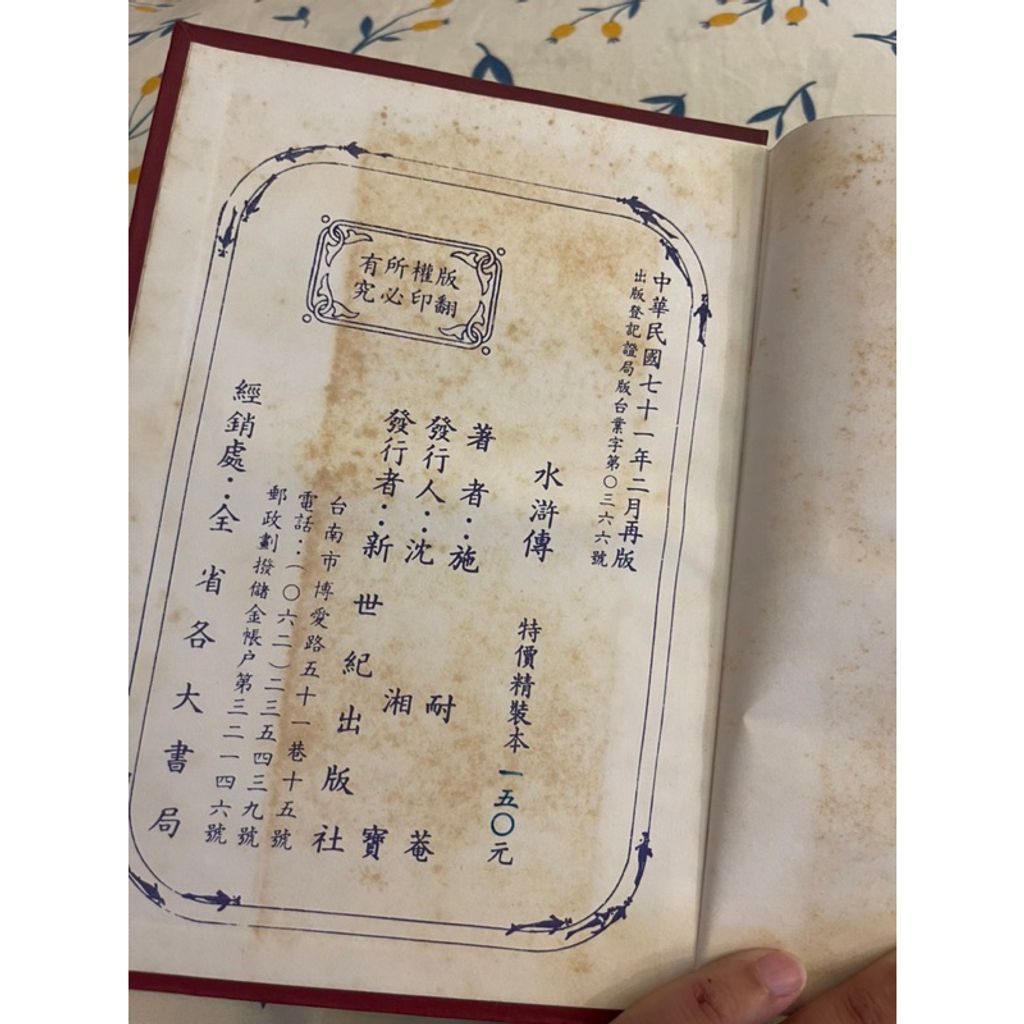 中華民國七十一年二月再版
出版登記證局版台業字第〇三六六號
水滸傳 特價精裝本 一五〇元
著者：施耐菴
發行人：沈湘寶
發行者：新世紀出版社
台南市博愛路五十一巷十五號
電話：（〇六二）二三五四三九號
郵政劃撥儲金帳戶第三二一四六號
經銷處：全省各大書局
版權所有
翻印必究